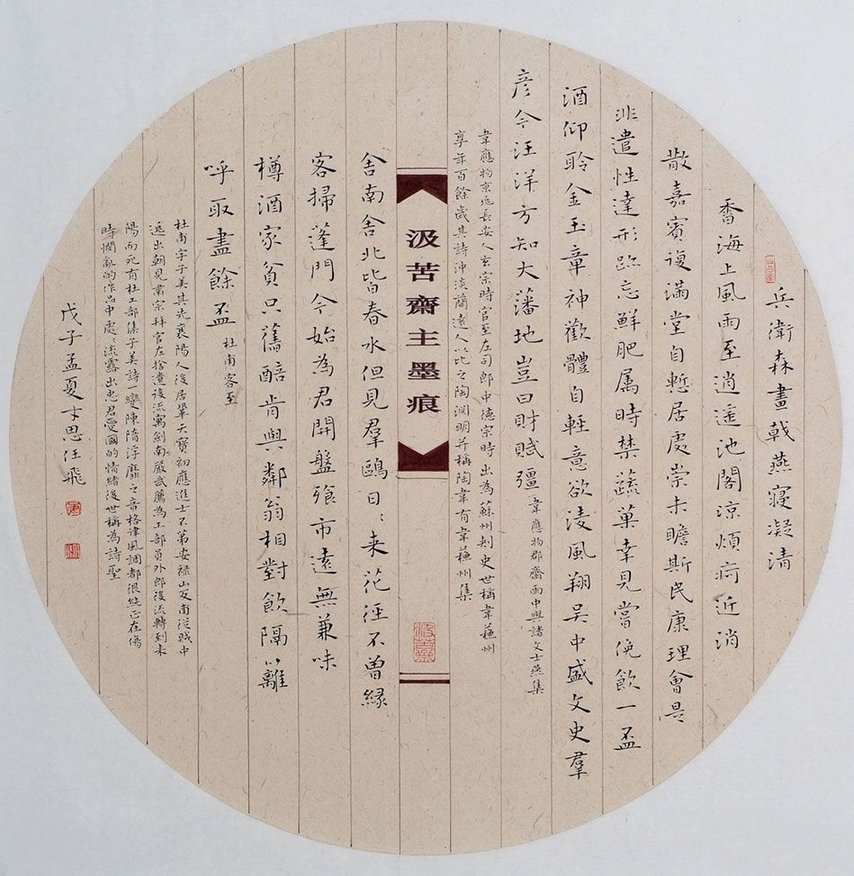 兵衛森畫戟燕寢凝清
香海上風雨至逍遥池閣涼煩疴近消
散嘉賓復滿堂自慙居處崇未瞻斯民康理會是
非遣性達形跡忘鮮肥属時禁蔬菓幸見嘗俛飲一盃
酒仰聆金玉章神歡體自輕意欲凌風翔吴中盛文史羣
彦今汪洋方知大藩地豈曰財賦彊
韋應物郡齋雨中與諸文士燕集
韋應物京兆長安人玄宗時官至左司郎中德宗時出為蘇州刺史世稱韋蘇州
享年百餘歲其詩沖淡簡遠人以比之陶渊明并稱陶韋有韋蘇州集
汲苦齋主墨痕
舍南舍北皆春水但見羣鷗日〻来花徑不曾緣
客掃蓬門今始為君開盤飧市遠無兼味
樽酒家貧只舊醅肯與鄰翁相對飲隔籬
呼取盡餘盃
杜甫客至
杜甫字子美其先襄陽人後居鞏天寶初應進士不第安禄山反甫從贼中
逃出朝見肅宗拜官左拾遺後流寓劍南嚴武薦為工部員外郎後流轉到耒
陽而死有杜工部集子美詩一變陳隋浮靡之音格律風調都很純正在傷
時憫亂的作品中處〻流露出忠君愛國的情緒後世稱為詩聖
戊子孟夏于思任飛